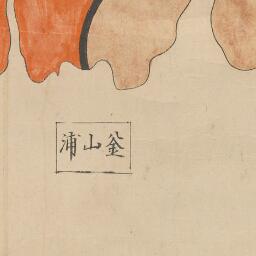 釜山浦